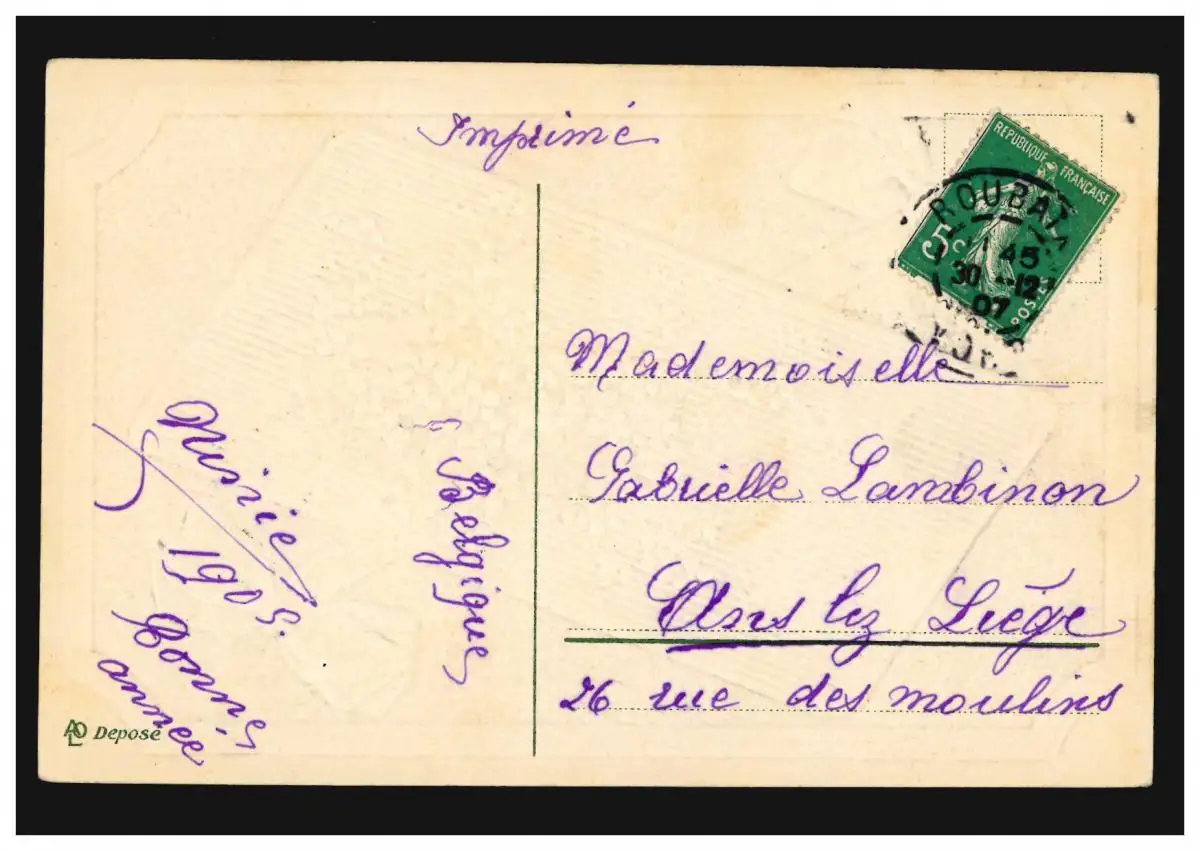 Imprimé
REPUBLIQUE FRANÇAISE
5 c
POSTES
ROUBAIX
45
30 -12
07
Mademoiselle
Gabrielle Lambinon
Ans lez Liége
26 rue des moulins
Belgique
1909.
Bonne
année
Deposé